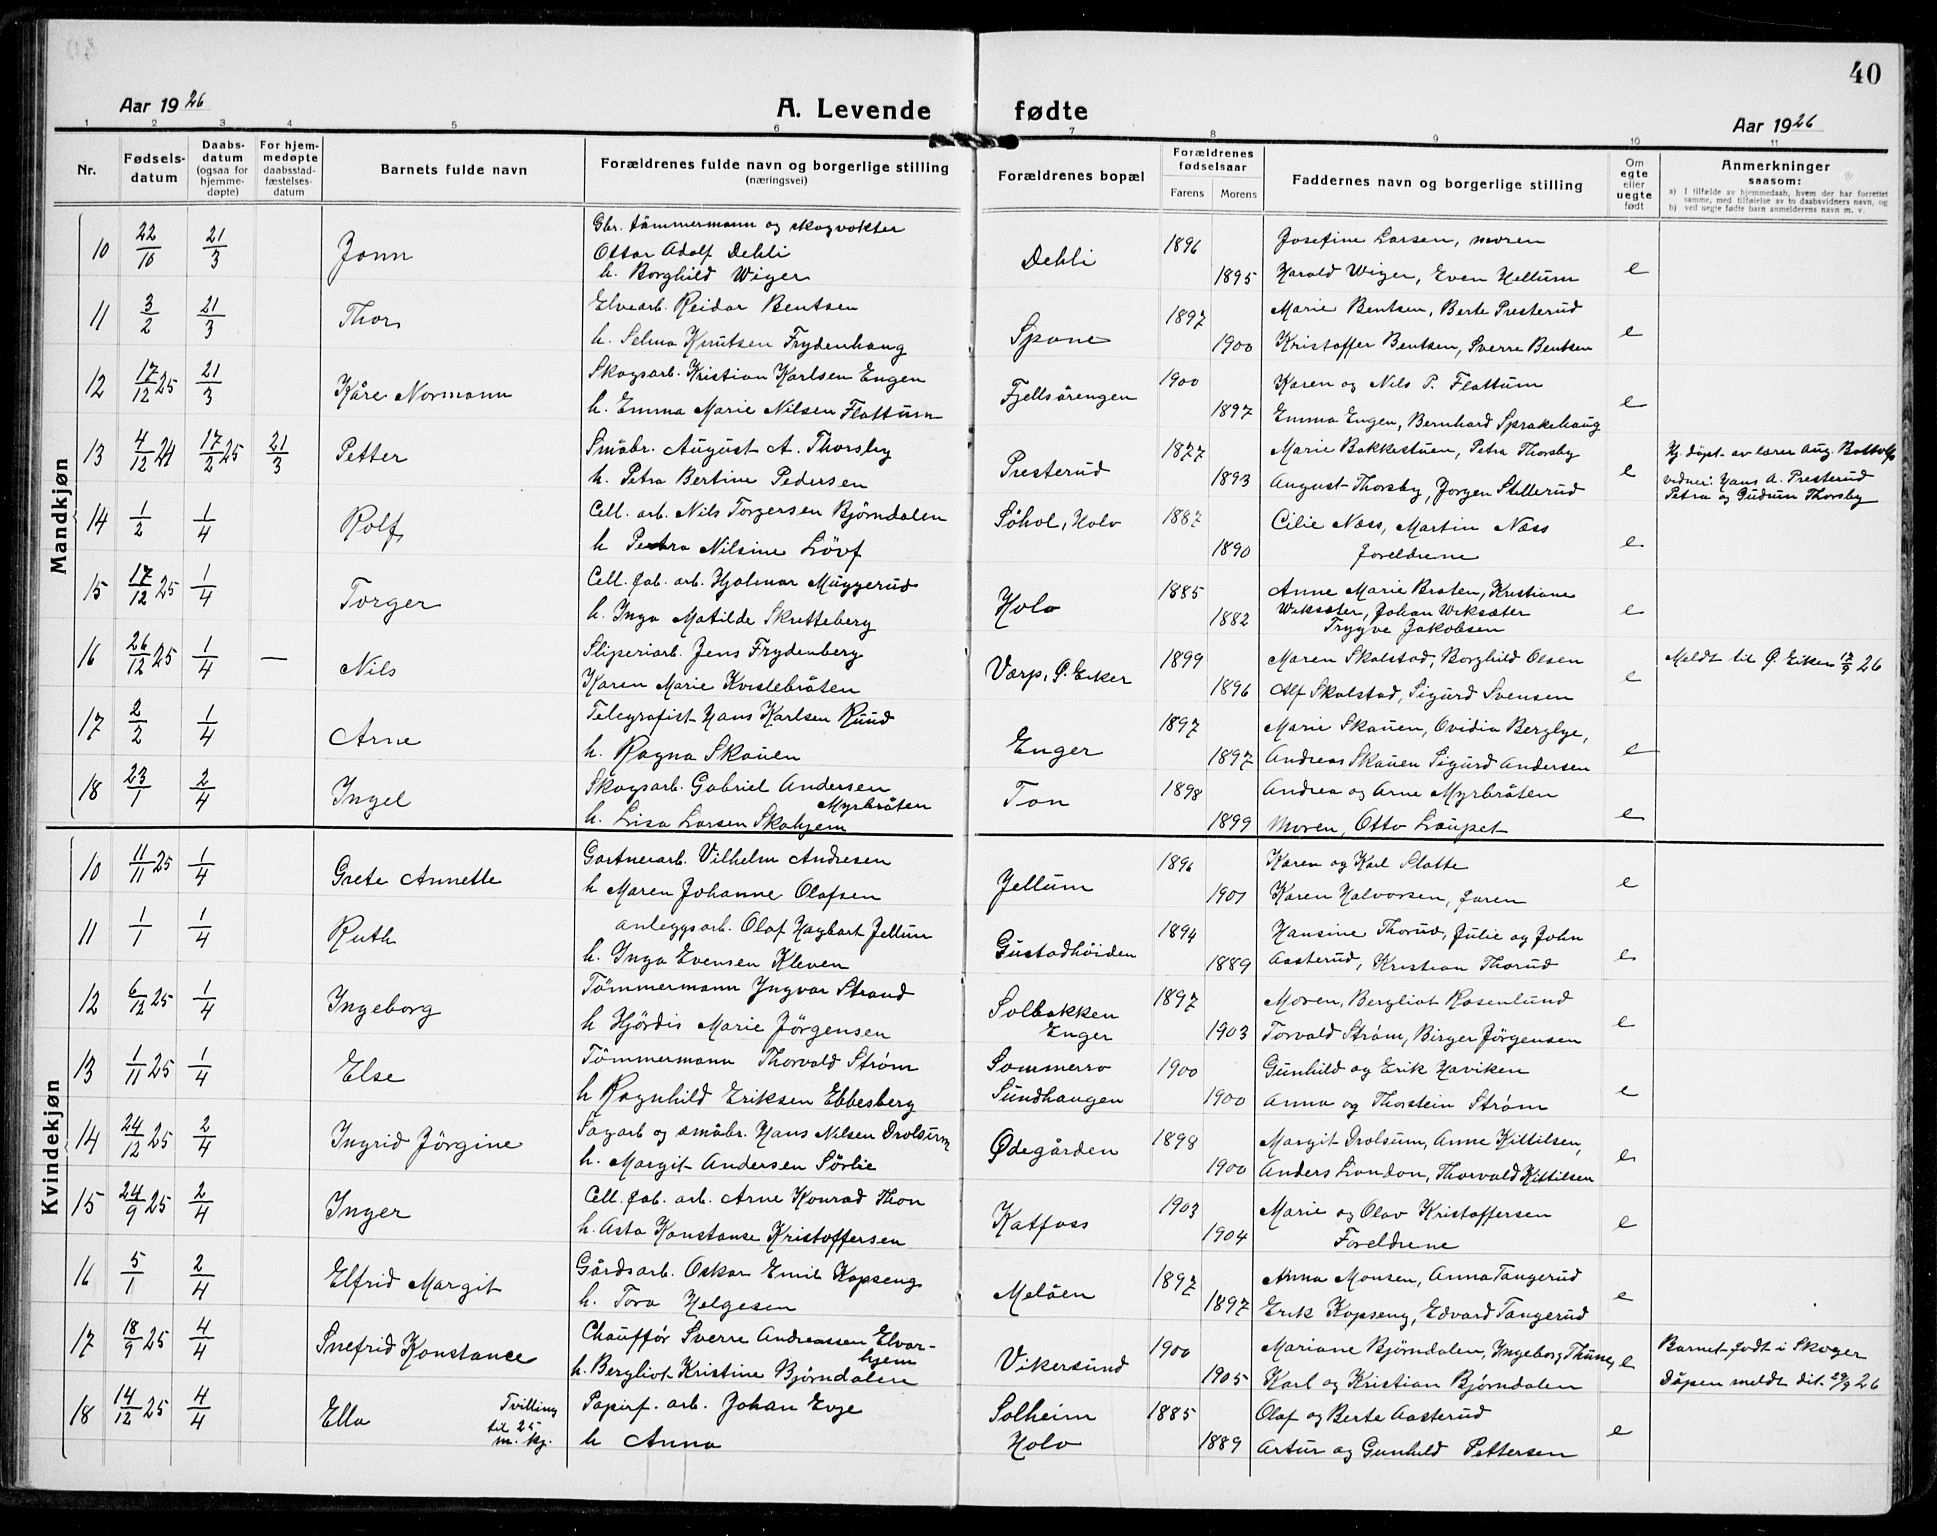 40
Aar 1926
A. Levende fødte
Aar 1926
1 2 3 4 5 6 7 8 9 10 11
Nr. | Fødsels-datum | Daabs-datum (ogsaa for hjemme-døpte) | For hjem-medøpte daabsstad-fæstelses-datum | Barnets fulde navn | Forældrenes fulde navn og borgerlige stilling (næringsvei) | Forældrenes bopæl | Forældrenes fødselsaar Farens Morens | Faddernes navn og borgerlige stilling | Om egte eller uegte født | Anmerkninger saasom:
a) I tilfælde av hjemmedaab, hvem der har forrettet samme, med tilføielse av to daabsvidners navn, og
b) ved uegte fødte barn anmelderens navn m. v.
Mandkjøn
Gbr. tömmermann og skogvokter Josefine Larsen, moren
10 22/10 21/3 Jonn Ottar Adolf Dehli Dehli 1896
h. Borghild Wiger 1895 Harald Wiger, Even Hellum e
11 3/2 21/3 Thor Elvearb. Reidar Bentsen Spone 1897 Marie Bentsen, Berte Presterud
h. Selma Knutsen Frydenhaug 1900 Kristoffer Bentsen, Sverre Bentsen e
12 17/12 25 21/3 Kåre Normann Skogsarb. Kristian Karlsen Engen Fjellsårengen 1900 Karen og Nils P. Flattum
h. Emma Marie Nilsen Flattum 1897 Emma Engen, Bernhard Sprakehaug e
13 4/12 24 17/2 25 21/3 Petter Småbr. August A. Thorsby Presterud 1877 Marie Bakkestuen, Petra Thorsby Hj. døpt av lærer Aug. Bottolfs
h. Petra Bertine Pedersen 1893 August Thorsby, Jorgen Stillerud e vidner: Hans A. Presterud
Petra og Gudrun Thorsby
14 1/2 1/4 Rolf Cell. arb. Nils Torgersen Björndalen Söhol, Holv 1887 Cilie Næss, Martin Næss
h Petra Nilsine Lövf 1890 Foreldrene e
15 17/12 25 1/4 Torger Cell. fab. arb. Hjalmar Muggerud Holv 1885 Anne Marie Braten, Kristiane
h. Inga Matilde Skretteberg 1882 Weksæter, Johan Weksæter e
Trygve Jakobsen
16 26/12 25 1/4 — Nils Sliperiarb. Jens Frydenberg Værp, Ö. Eiker 1899 Maren Skalstad, Borghild Olsen Meldt til Ø. Eiker 17/9 26
Karen Marie Kvislebråten 1896 Alf Skalstad, Sigurd Svensen e
17 2/2 1/4 Arne Telegrafist Hans Karlsen Ruud Enger 1897 Marie Skauen, Ovidia Berglye,
h. Ragna Skauen 1897 Andreas Skauen Sigurd Andersen e
18 23/1 2/4 Ingel Skogsarb. Gabriel Andersen Ton 1898 Andrea og Arne Myrbråten
Myrbråten
h. Lisa Larsen Skohjem 1899 Moren, Otto Laupet e
Kvindekjøn
10 11/11 25 1/4 Grete Annette Gartnerarb. Vilhelm Andresen Jellum 1896 Karen og Karl Slatte
h Maren Johanne Olafsen 1901 Karen Halvorsen, faren e
11 1/1 1/4 Ruth anleggsarb. Olaf Hagbart Jellum Gustadhöiden 1894 Hansine Thorud, Julie og John
h. Inga Evensen Kleven 1889 Aasterud, Kristian Thorud e
12 6/12 25 1/4 Ingeborg Tömmermann Yngvar Strand Solbakken 1897 Moren, Bergliot Rosenlund
h Hjördis Marie Jörgensen Enger 1903 Torvald Strøm, Birger Jörgensen e
13 1/11 25 1/4 Else Tömmermann Thorvald Strøm Sommerro 1900 Gunhild og Erik Haviken
h Ragnhild Eriksen Ebbesberg Sundhaugen 1900 Anna og Thorstein Strøm e
14 24/12 25 2/4 Ingrid Jörgine Sagarb og småbr. Hans Nilsen Drolsum Ødegården 1898 Margit Drolsum, Anne Kittilsen,
h. Margit Andersen Sörlie 1900 Anders London, Thorvald Kittilsen e
15 24/9 25 2/4 Inger Cell. fab. arb. Arne Konrad Thon Katfoss 1903 Marie og Olav Kristoffersen
h. Asta Konstanse Kristoffersen 1904 Foreldrene e
16 5/1 2/4 Elfrid Margit Gårdsarb. Oskar Emil Kopseng Melåen 1897 Anna Monsen, Anna Tangerud
h. Tora Helgesen 1897 Erik Kopseng, Edvard Tangerud e
17 18/9 25 4/4 Snefrid Konstance Chauffør Sverre Andreassen Elvar- Vikersund 1900 Mariane Bjørndalen, Ingeborg Thune, Barnet født i Skoger
hjem
h. Bergliot Kristine Bjørndalen 1905 Karl og Kristian Bjørndalen e Dåpen meldt dit 29/9 26
18 14/12 25 4/4 Ella Tvilling til 25 m. kj. Papirf. arb. Johan Evje Solheim 1885 Olaf og Berte Aasterud
h Anna Holv 1889 Artur og Gunhild Pettersen e